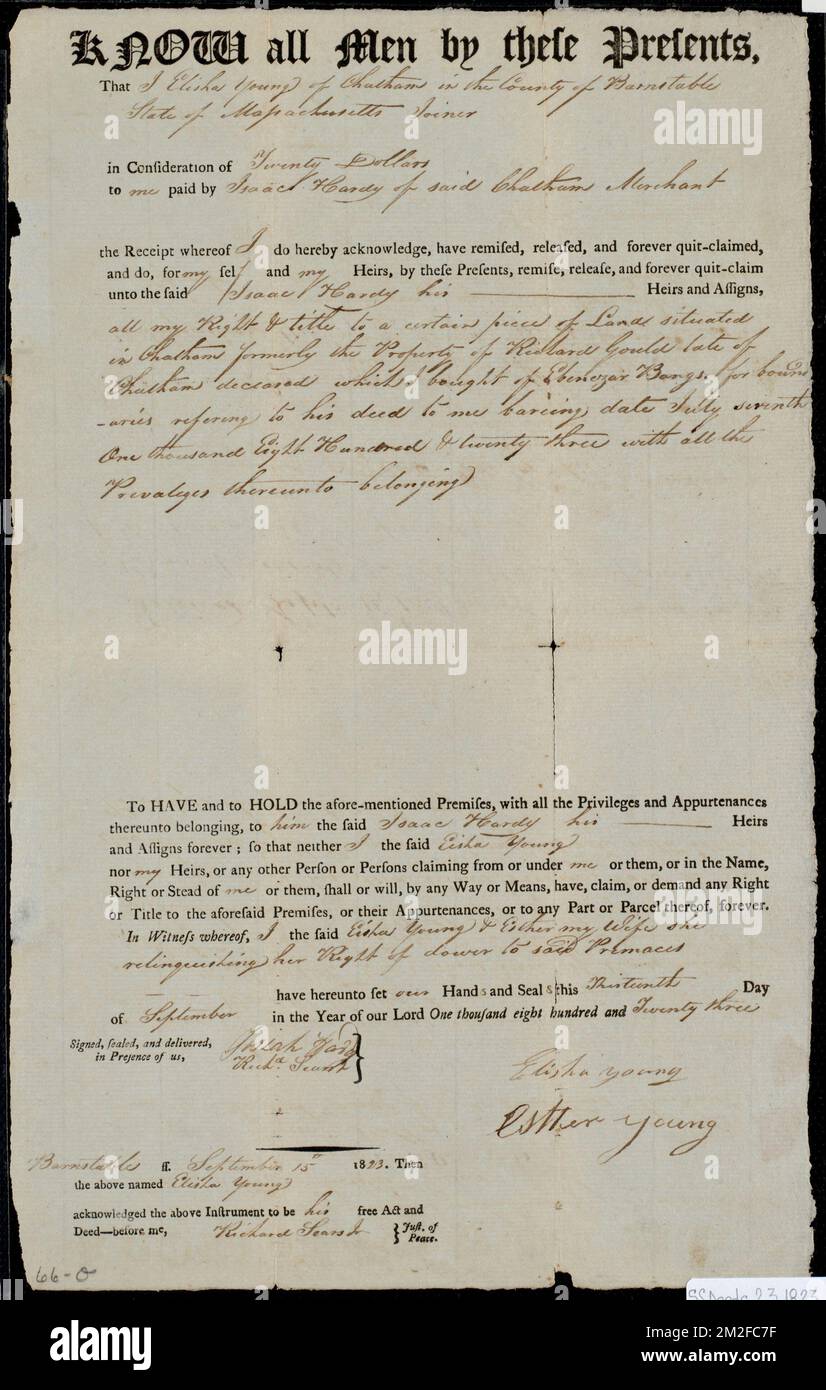 KNOW all Men by theſe Preſents,
That I Elisha Young of Chatham in the County of Barnstable
State of Massachusetts Joiner
in Conſideration of Twenty Dollars
to me paid by Isaac Hardy of said Chatham Merchant
the Receipt whereof I do hereby acknowledge, have remiſed, releaſed, and forever quit-claimed,
and do, for my ſelf and my Heirs, by theſe Preſents, remiſe, releaſe, and forever quit-claim
unto the ſaid Isaac Hardy his Heirs and Aſſigns,
all my Right & title to a certain piece of Land situated
in Chatham formerly the Property of Richard Gould late of
Chatham deceased which I bought of Ebenezar Bangs, for bound
-aries refering to his deed to me bareing date July seventh
One thousand Eight Hundred & twenty three with all the
Prevaleges thereunto belonging
To HAVE and to HOLD the afore-mentioned Premiſes, with all the Privileges and Appurtenances
thereunto belonging, to him the ſaid Isaac Hardy his Heirs
and Aſſigns forever; ſo that neither I the ſaid Elisha Young
nor my Heirs, or any other Perſon or Perſons claiming from or under me or them, or in the Name,
Right or Stead of me or them, ſhall or will, by any Way or Means, have, claim, or demand any Right
or Title to the aforeſaid Premiſes, or their Appurtenances, or to any Part or Parcel thereof, forever.
In Witneſs whereof, I the ſaid Elisha Young & Esther my Wife she
relinquishing her Right of dower to said Premaces
have hereunto ſet our Hands and Seals this Thirteenth Day
of September in the Year of our Lord One thouſand eight hundred and Twenty three
Signed, ſealed, and delivered,
in Preſence of us,
Richd Sears
Elisha Young
Esther Young
Barnstable ſſ. September 15th 1823. Then
the above named Elisha Young
acknowledged the above Inſtrument to be his free Act and
Deed—before me, Richard Sears Jr } Juſt. of
Peace.
66-0
alamy
Image ID: 2M2FC7F
www.alamy.com